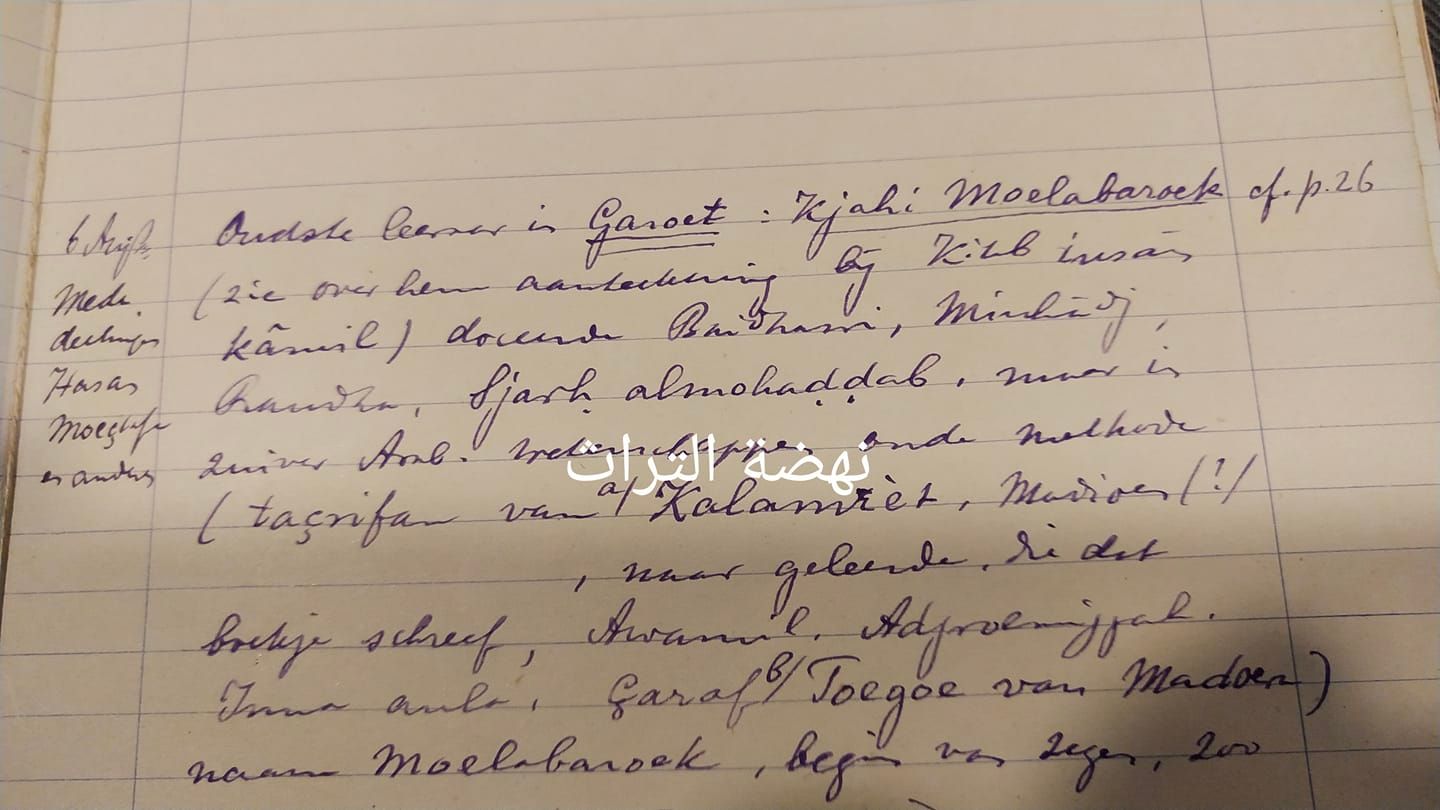 Oudste leeraar in Garoet : Kjahi Moelabaroek cf. p. 26
(zie over hem aanteekening bij Kitab insān
kāmil) doceerde Baidhawi, Minhādj,
Raudha, Sjarḥ almohaḍḍab, maar in
zuiver Arab. wetenschappen oude methode
(taçrifan van a/ Kalamrèt, Madioen (?)
, naar geleerde, die dat
boekje schreef, Awamil, Adjroemijjah.
Inna aula, Çaraf b/ Toegoe van Madoera)
naam Moelabaroek, begin van zegen, 200
Mede
deelingen
Hasan
Moeçtafa
en anders
نهضة التراث